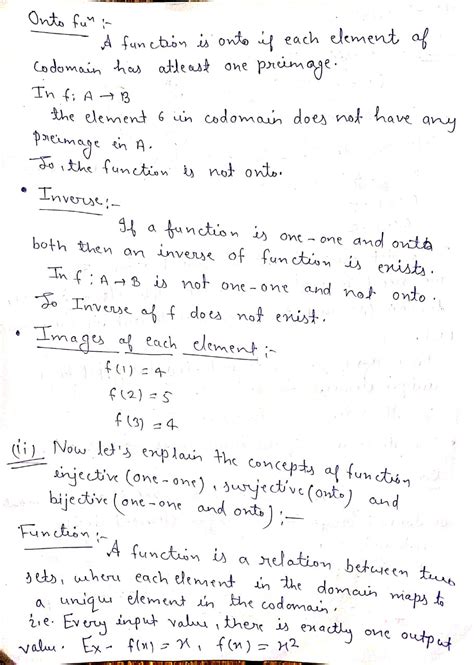 Onto fuⁿ :-
A function is onto if each element of
codomain has atleast one preimage.
In f: A → B
the element 6 in codomain does not have any
preimage in A.
So, the function is not onto.
• Inverse :-
If a function is one-one and onto
both then an inverse of function is exists.
In f : A → B is not one-one and not onto.
So Inverse of f does not exist.
• Images of each element :-
f(1) = 4
f(2) = 5
f(3) = 4
(ii) Now let's explain the concepts of function
injective (one-one), surjective (onto) and
bijective (one-one and onto) :-
Function :-
A function is a relation between two
sets, where each element in the domain maps to
a unique element in the codomain.
i.e. Every input value, there is exactly one output
value. Ex - f(x) = x, f(x) = x2